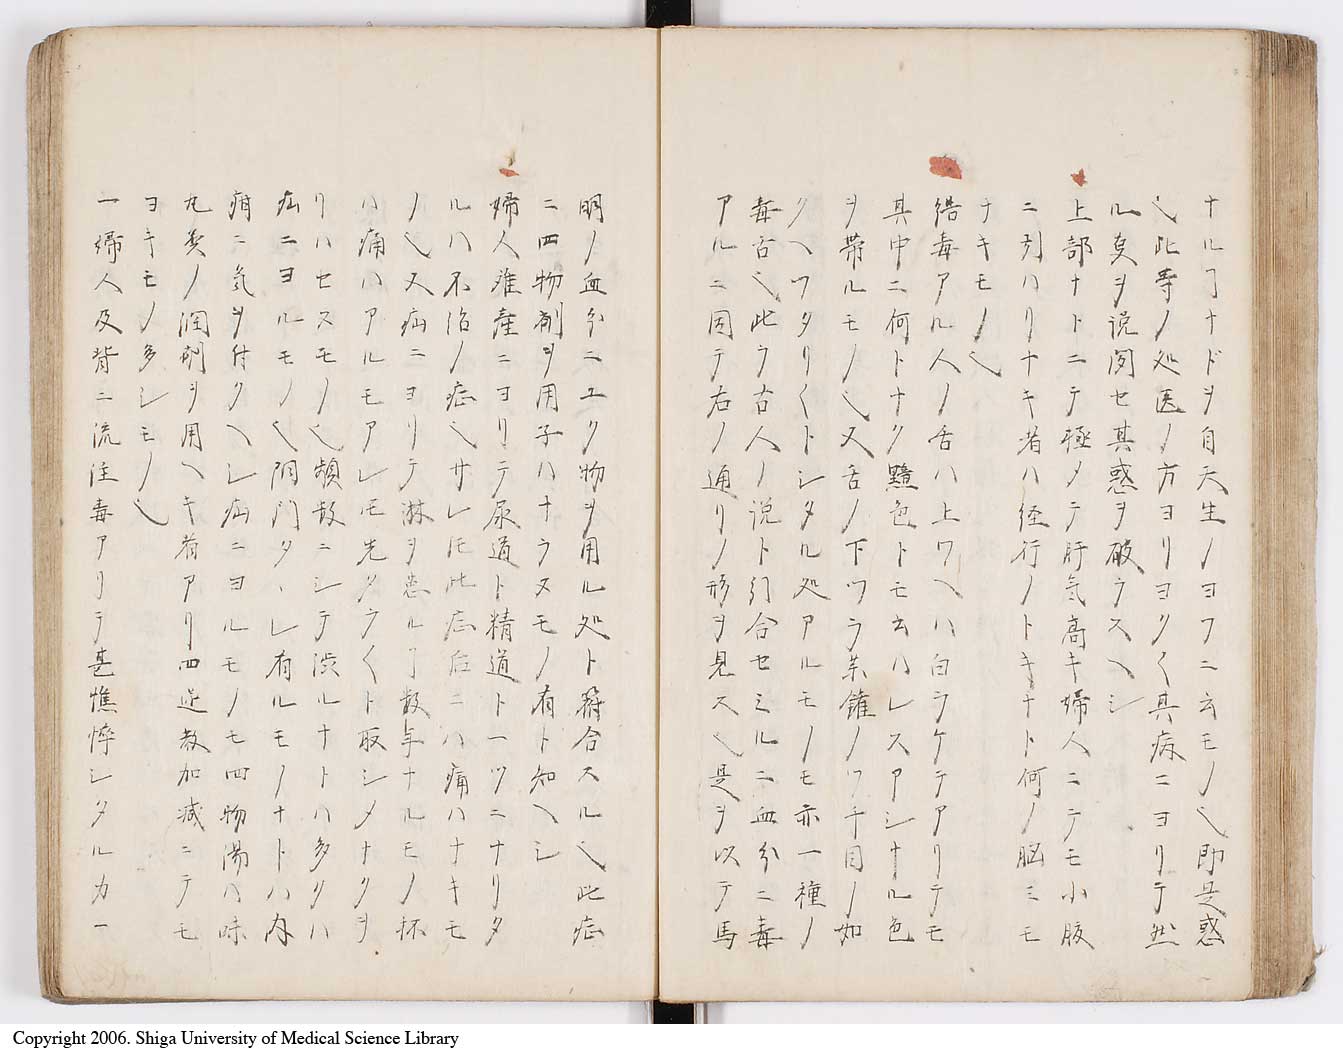 ナルヿナドヲ自天生ノヨフニ云モノ也即是惑
也此等ノ処医ノ方ヨリヨク〱其病ニヨリテ然
ル夏ヲ説聞セ其惑ヲ破ラスヘシ
上部ナトニテ極メテ肝気高キ婦人ニテモ小腹
ニ引ハリナキ者ハ経行ノトキナト何ノ脳ミモ
ナキモノ也
結毒アル人ノ舌ハ上ワヘハ白ラケテアリテモ
其中ニ何トナク黯色トモ云ハレスアシナル色
ヲ帯ルモノ也又舌ノ下ツラ
クヘワタリ〱トシタル処アルモノモ亦一種ノ
毒舌也此ラ古人ノ説ト引合セミルニ血分ニ毒
アルニ因テ右ノ通リノ形ヲ見ス也是ヲ以テ馬
明ノ血分ニユク物ヲ用ル処ト符合スル也此症
ニ四物剤ヲ用子ハナラヌモノ有ト知ヘシ
婦人難産ニヨリテ尿道ト精道ト一ツニナリタ
ルハ不治ノ症也サレ𪜈此症后ニハ痛ハナキモ
ノ也又疝ニヨリテ淋ヲ患ルヿ数年ナルモノ抔
ハ痛ハアルモアレモ先タラ〱ト取シメナクヲ
リハセスモノ也頻数ニシテ渋ルナトハ多クハ
疝ニヨルモノ也陰門タヽレ有ルモノナトハ内
疳ニ気ヲ付クヘシ疝ニヨルモノモ四物湯八味
丸類ノ潤剤ヲ用ヘキ者アリ四逆散加減ニテモ
ヨキモノ多シモノ也
一婦人及背ニ流注毒アリテ甚憔悴シタルカ一
Copyright 2006. Shiga University of Medical Science Library